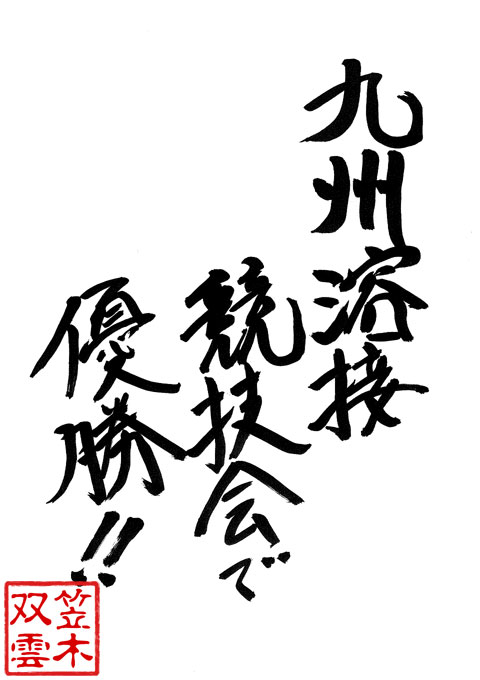 九州溶接
競技会で
優勝!!
笠木
双雲